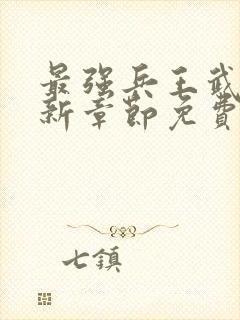 最强兵王武
新章節免費
七鎮